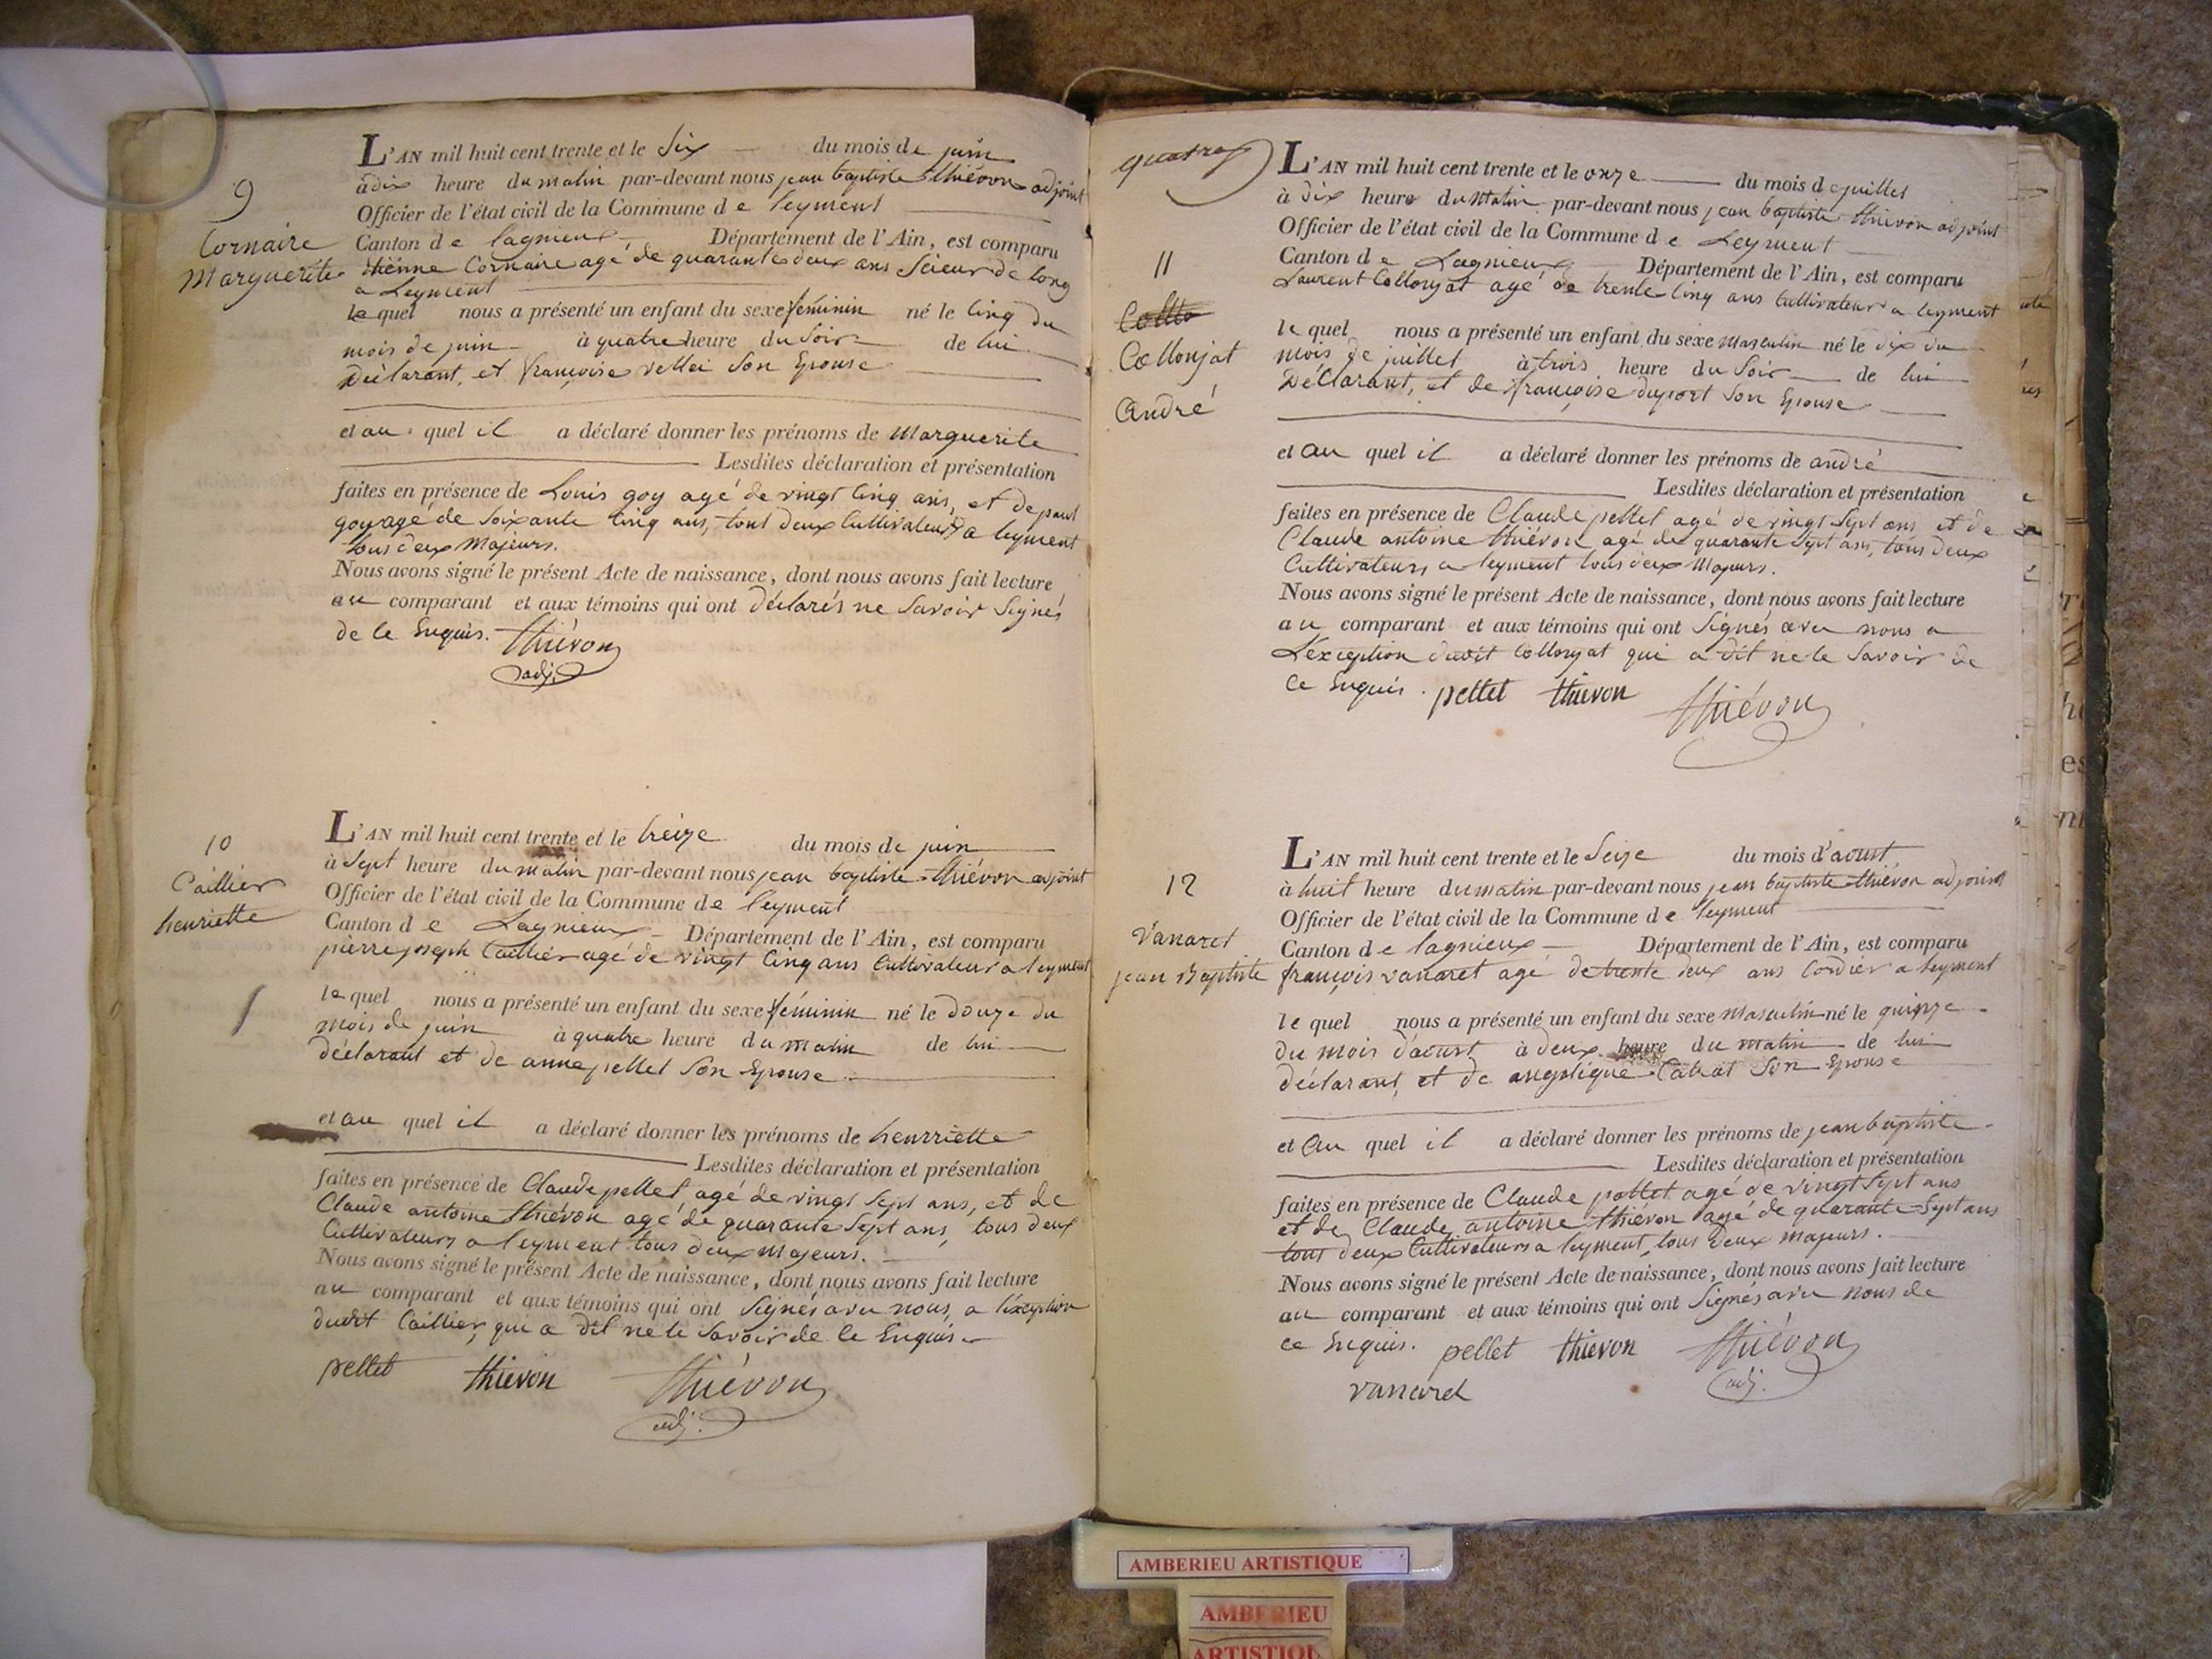 9
Cornaire
Marguerite
L'AN mil huit cent trente et le Six du mois de juin
à dix heure du matin par-devant nous jean baptiste thiévon adjoint
Officier de l'état civil de la Commune de leyment
Canton de lagnieux Département de l'Ain, est comparu
étienne Cornaire agé de quarante deux ans Scieur de long
a Leyment
le quel nous a présenté un enfant du sexe féminin né le Cinq du
mois de juin à quatre heure du Soir de lui
Déclarant, et françoise vellei Son Epouse
et au quel il a déclaré donner les prénoms de Marguerite
Lesdites déclaration et présentation
faites en présence de Louis goy agé de vingt Cinq ans, et de paul
goy agé de Soixante Cinq ans, tout deux Cultivateurs a leyment
tous deux Majeurs.
Nous avons signé le présent Acte de naissance, dont nous avons fait lecture
au comparant et aux témoins qui ont déclarés ne Savoir Signés
de ce Enquis. thiévon
adj.
10
Caillier
henriette
L'AN mil huit cent trente et le treize du mois de juin
à Sept heure du matin par-devant nous jean baptiste thiévon adjoint
Officier de l'état civil de la Commune de leyment
Canton de Lagnieux Département de l'Ain, est comparu
pierre joseph Caillier agé de vingt Cinq ans Cultivateur a leyment
le quel nous a présenté un enfant du sexe féminin né le douze du
mois de juin à quatre heure du matin de lui
déclarant et de anne pellet Son Epouse
et au quel il a déclaré donner les prénoms de henrriette
Lesdites déclaration et présentation
faites en présence de Claude pellet agé de vingt Sept ans, et de
Claude antoine thiévon agé de quarante Sept ans, tous deux
Cultivateurs a leyment tous deux Majeurs.
Nous avons signé le présent Acte de naissance, dont nous avons fait lecture
au comparant et aux témoins qui ont Signés avec nous, a l'éxception
dudit Caillier, qui a dit ne le Savoir de ce Enquis
pellet thievon thiévon
adj.
quatre
11
Collonjat
André
L'AN mil huit cent trente et le onze du mois de juillet
à dix heure du Matin par-devant nous jean baptiste thiévon adjoint
Officier de l'état civil de la Commune de Leyment
Canton de Lagnieux Département de l'Ain, est comparu
Laurent Collonjat agé de trente Cinq ans Cultivateur a leyment
le quel nous a présenté un enfant du sexe Masculin né le dix du
mois de juillet à trois heure du Soir de lui
Déclarant, et de françoise duport Son Epouse
et au quel il a déclaré donner les prénoms de andré
Lesdites déclaration et présentation
faites en présence de Claude pellet agé de vingt Sept ans et de
Claude antoine thiévon agé de quarante Sept ans, tous deux
Cultivateurs a leyment tous deux Majeurs.
Nous avons signé le présent Acte de naissance, dont nous avons fait lecture
au comparant et aux témoins qui ont Signés avec nous a
L'éxception dudit Collonjat qui a dit ne le Savoir de
Ce Enquis. pellet thievon thiévon
12
Vanaret
jean Baptiste
L'AN mil huit cent trente et le Seize du mois d'aoust
à huit heure du matin par-devant nous jean baptiste thiévon adjoint
Officier de l'état civil de la Commune de leyment
Canton de lagnieux Département de l'Ain, est comparu
françois vanaret agé de trente deux ans Cordier a leyment
le quel nous a présenté un enfant du sexe Masculin né le quinze
du mois d'aoust à deux heure du matin de lui
déclarant, et de angélique Son Epouse
et au quel il a déclaré donner les prénoms de jean baptiste
Lesdites déclaration et présentation
faites en présence de Claude pellet agé de vingt Sept ans
et de Claude antoine thiévon agé de quarante Sept ans
tout deux Cultivateurs a leyment, tous deux majeurs.
Nous avons signé le présent Acte de naissance, dont nous avons fait lecture
au comparant et aux témoins qui ont Signés avec Nous de
ce Enquis. pellet thievon thiévon
vanaret adj.
AMBERIEU ARTISTIQUE
AMBERIEU
ARTISTIQU